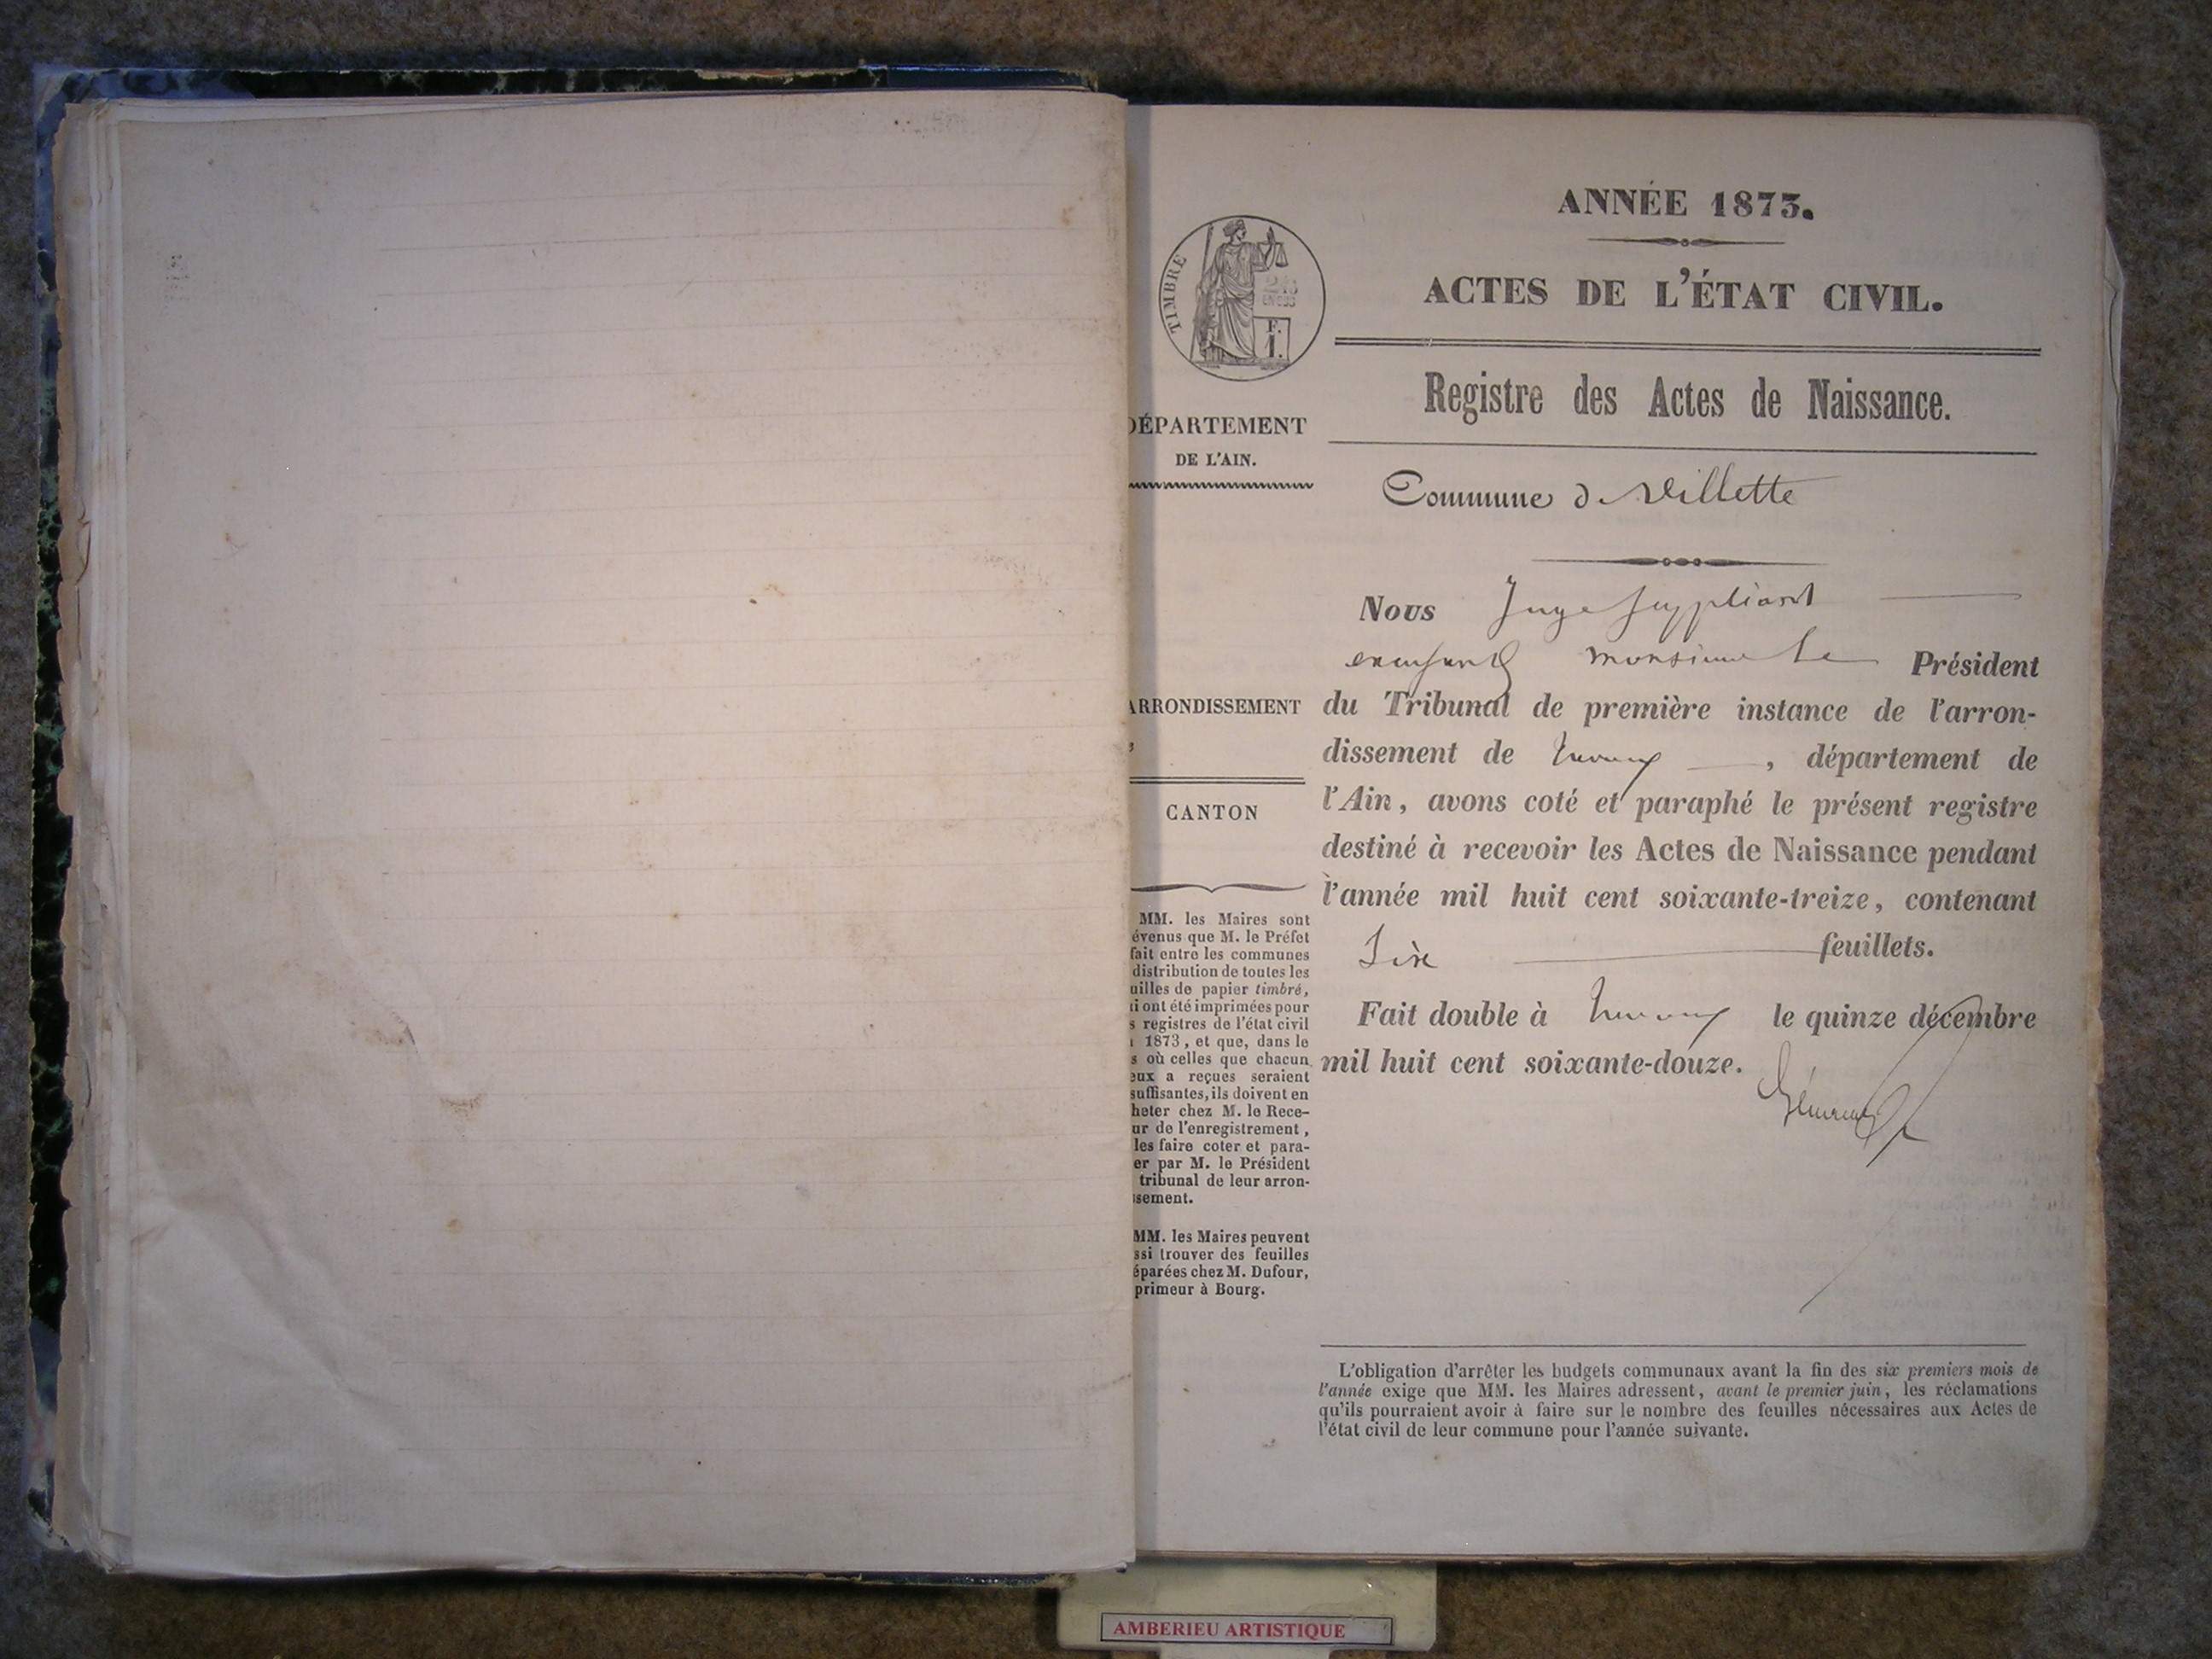 ANNÉE 1873.
ACTES DE L'ÉTAT CIVIL.
Registre des Actes de Naissance.
Commune de Villette
Nous Juge suppléant
Monsieur le Président
du Tribunal de première instance de l'arron-
dissement de Trévoux, département de
l'Ain, avons coté et paraphé le présent registre
destiné à recevoir les Actes de Naissance pendant
l'année mil huit cent soixante-treize, contenant
Six feuillets.
Fait double à Trévoux le quinze décembre
mil huit cent soixante-douze.
L'obligation d'arrêter les budgets communaux avant la fin des six premiers mois de
l'année exige que MM. les Maires adressent, avant le premier juin, les réclamations
qu'ils pourraient avoir à faire sur le nombre des feuilles nécessaires aux Actes de
l'état civil de leur commune pour l'année suivante.
TIMBRE
F.
I.
DÉPARTEMENT
DE L'AIN.
ARRONDISSEMENT
CANTON
MM. les Maires sont
évenus que M. le Préfet
fait entre les communes
distribution de toutes les
uilles de papier timbré,
i ont été imprimées pour
s registres de l'état civil
1873, et que, dans le
s où celles que chacun
eux a reçues seraient
suffisantes, ils doivent en
heter chez M. le Rece-
ur de l'enregistrement,
les faire coter et para-
er par M. le Président
tribunal de leur arron-
sement.
MM. les Maires peuvent
ssi trouver des feuilles
éparées chez M. Dufour,
primeur à Bourg.
AMBERIEU ARTISTIQUE